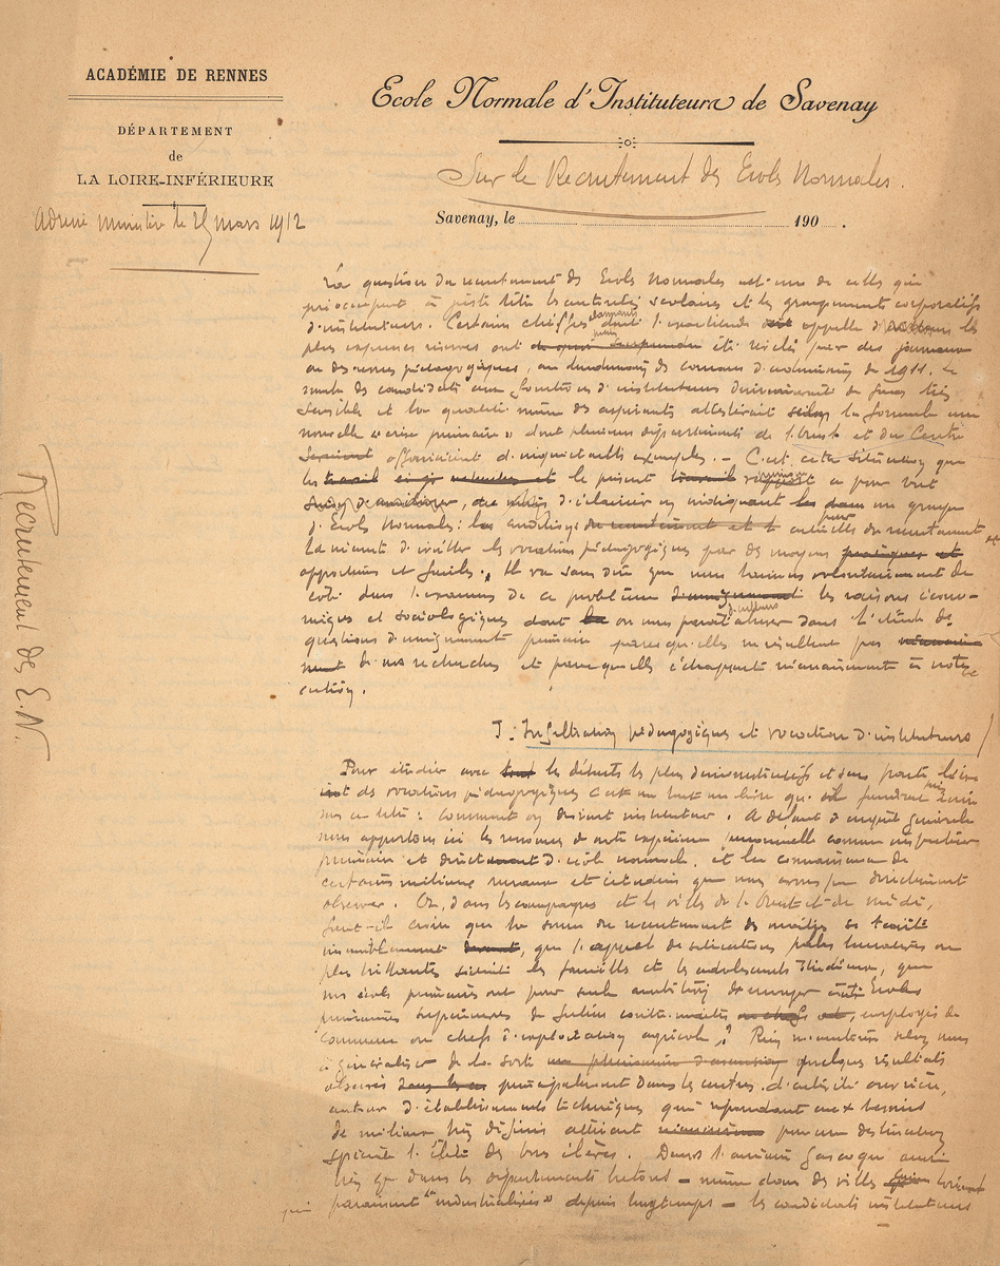 ACADÉMIE DE RENNES
DÉPARTEMENT
de
LA LOIRE-INFÉRIEURE
le 25 mars 1912
Ecole Normale d'Instituteurs de Savenay
Sur le Recrutement des Ecoles Normales.
Savenay, le 190 .
Recrutement des E.N.
La question du recrutement des Ecoles Normales est une de celles qui
préoccupent à juste titre les autorités scolaires et les groupements corporatifs
d'instituteurs. Certains chiffres dont appelle les
plus expresses réserves ont été cités par des journaux
ou des revues pédagogiques, au lendemain des concours d'admission de 1911. Le
nombre des candidats aux fonctions d'instituteurs diminuerait de façon très
sensible et la qualité même des aspirants attesterait selon la formule une
nouvelle « crise primaire » dont plusieurs départements de l'Ouest et du Centre
seraient offriraient d'inquiétants exemples. - C'est cette situation que
le présent rapport a pour but
d'éclaircir en indiquant un groupe
d'Ecoles Normales : les conditions du recrutement et actuelles du recrutement
la manière d'éveiller les vocations pédagogiques par des moyens pratiques et
opportuns et faciles. Il va sans dire que nous laissons volontairement de
côté dans l'examen de ce problème les raisons écono-
miques et sociologiques dont on nous paraît d'ailleurs abuser dans l'étude des
questions d'enseignement primaire parce qu'elles ne résultent pas
de nos recherches et parce qu'elles échappent nécessairement à notre
action.
I : pédagogiques et vocation d'instituteurs
Pour étudier avec tous les détails les plus démonstratifs et sans
des vocations pédagogiques c'est un livre qu'il faudrait écrire
sur ce titre : comment on devient instituteur. A défaut d'enquête générale
nous apportons ici les ressources de notre expérience personnelle comme inspecteur
primaire et directeur d'école normale, et la connaissance de
certains milieux ruraux et citadins que nous avons pu directement
observer. Or, dans les campagnes et les villes de l'Ouest et du midi,
faut-il croire que la source du recrutement des maîtres se tarit
insensiblement, que l'appel de situations plus lucratives ou
plus brillantes séduit les familles et les adolescents studieux, que
nos écoles primaires ont pour seule ambition de envoyer aux Ecoles
primaires supérieures de futurs contre-maîtres, employés de
commerce ou chefs d'exploitation agricole ? Rien n'autorise selon nous
à généraliser de la sorte quelques résultats
observés dans les principalement dans les centres d'activité ouvrière,
autour d'établissements techniques qui répondant aux besoins
de milieux très définis attirent pour une destination
spéciale l'élite des bons élèves. Dans
dans les départements bretons - même dans des villes
paraissent "industrialisées" depuis longtemps - les candidats instituteurs